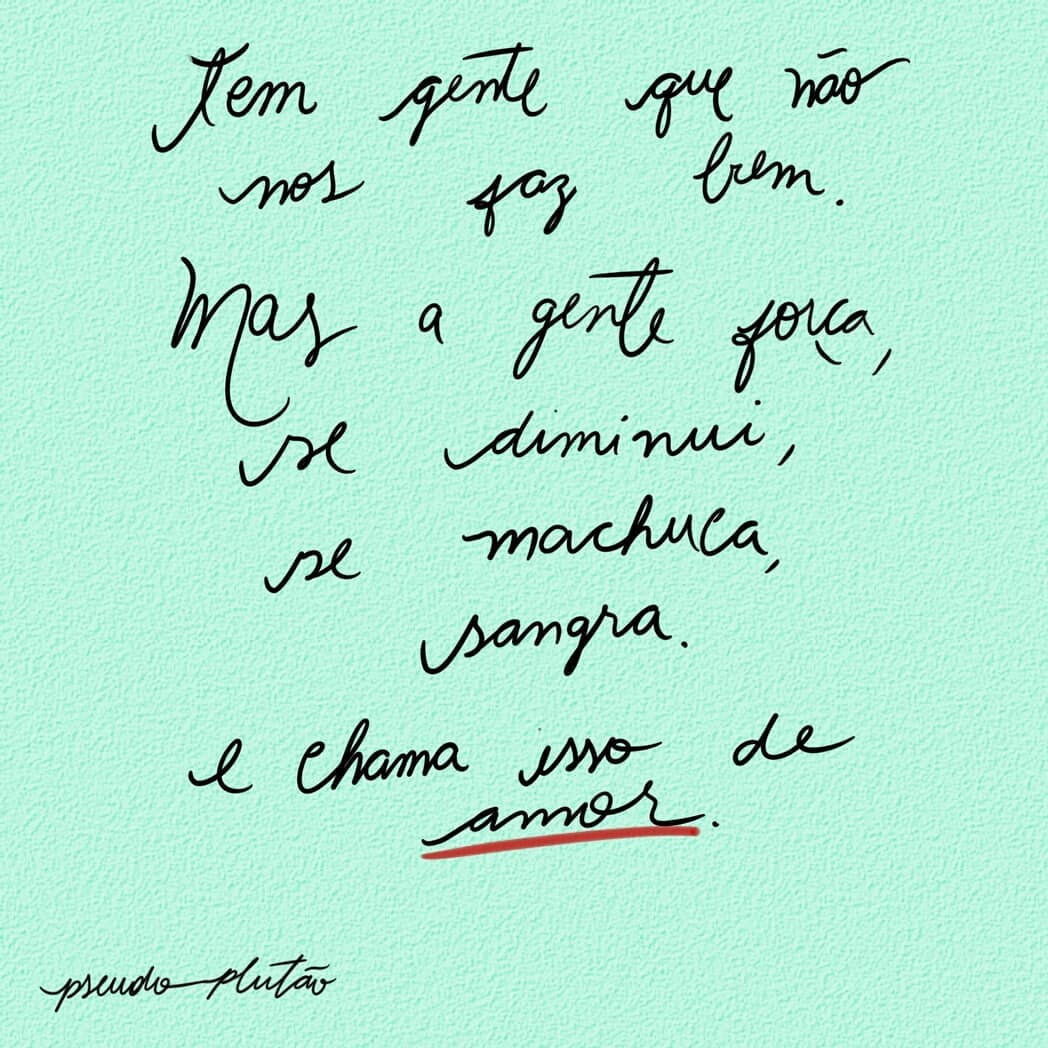 Tem gente que não
nos faz bem.
Mas a gente força,
se diminui,
se machuca,
sangra.
e chama isso de
amor.
pseudo plutão